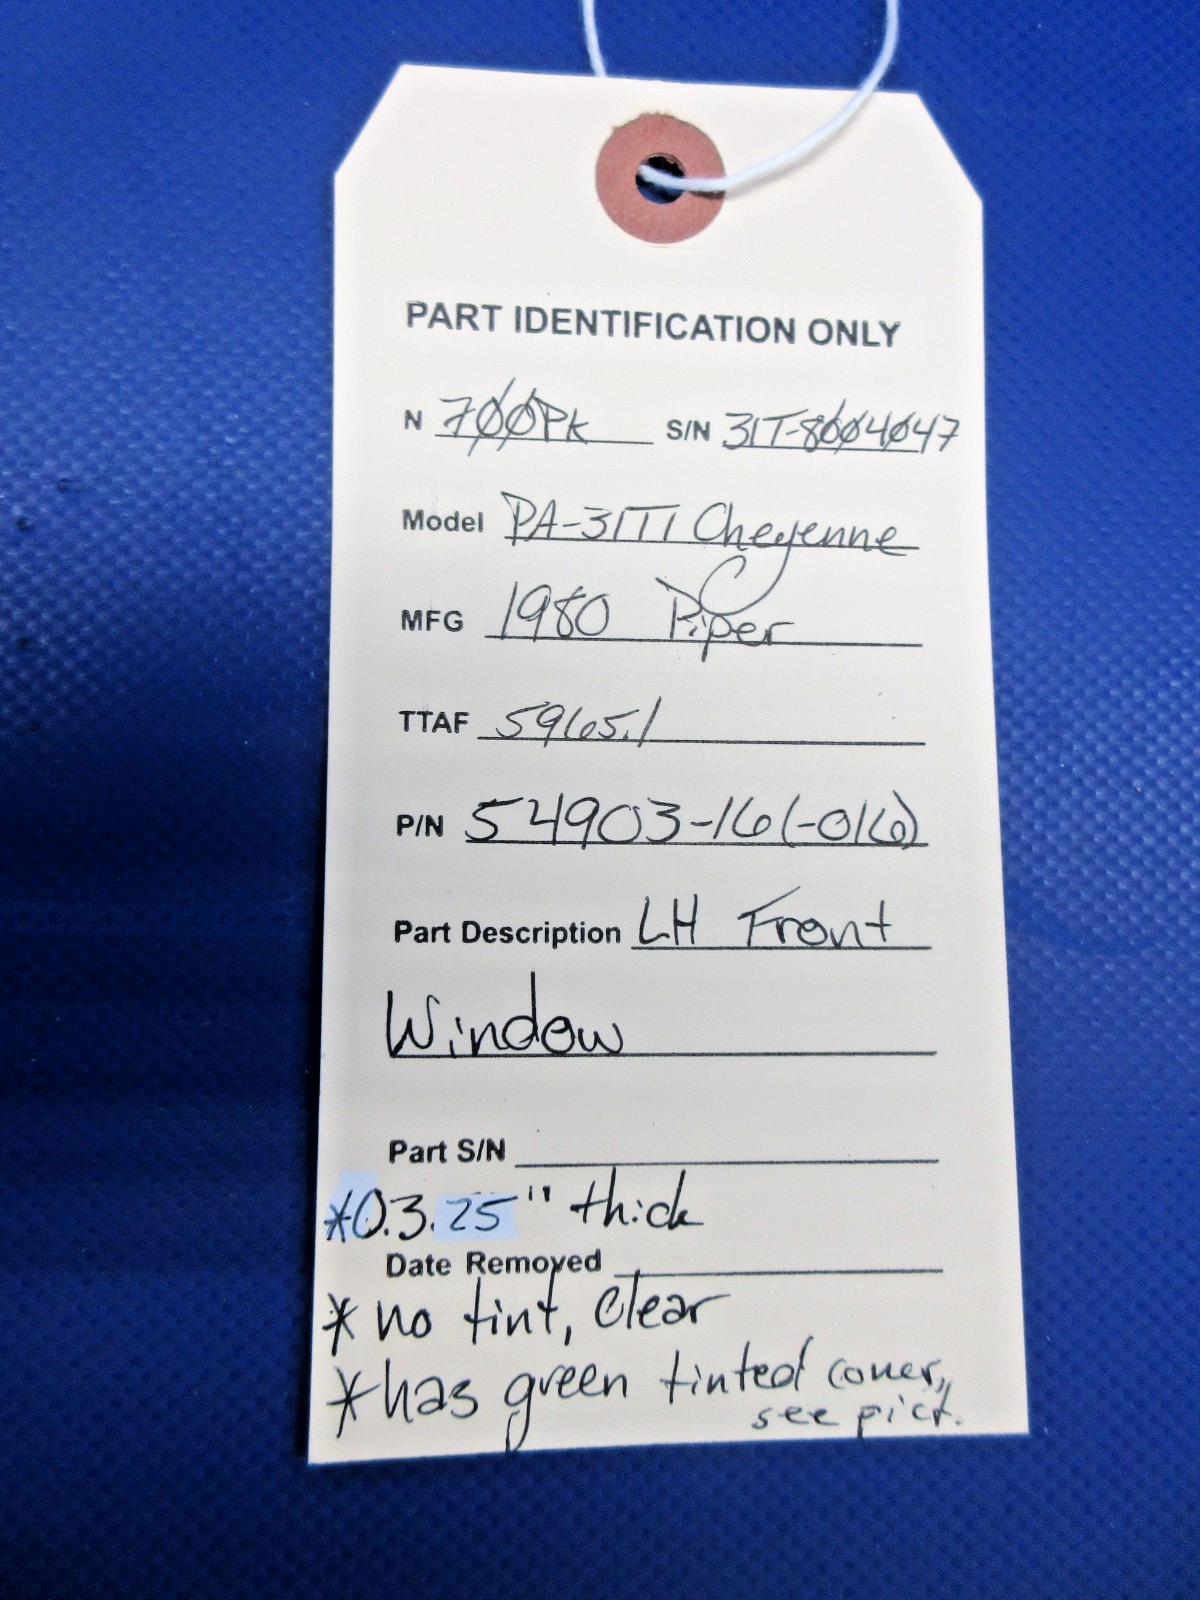 PART IDENTIFICATION ONLY
N 700PK S/N 31T-8004047
Model PA-31T1 Cheyenne
MFG 1980 Piper
TTAF 5965.1
P/N 54903-16(-016)
Part Description LH Front
Window
Part S/N
*0.3.25" thick
Date Removed
* no tint, clear
* has green tinted corner,
see pict.